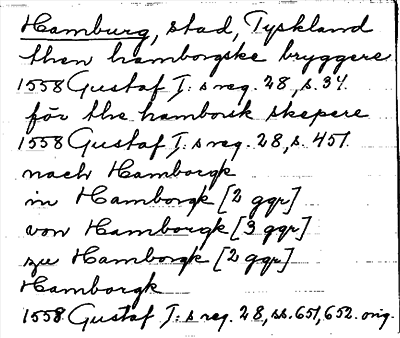 Hamburg, stad, Tyskland
then hamborgske bryggere
1558 Gustaf I:s reg. 28, s. 34.
för the hamborsk skepere
1558 Gustaf I:s reg. 28, s. 451.
nach Hamborgk
in Hamborgk [2 ggr]
von Hamborgk [3 ggr]
zu Hamborgk [2 ggr]
Hamborgk
1558 Gustaf I:s reg. 28, ss. 651, 652. orig.